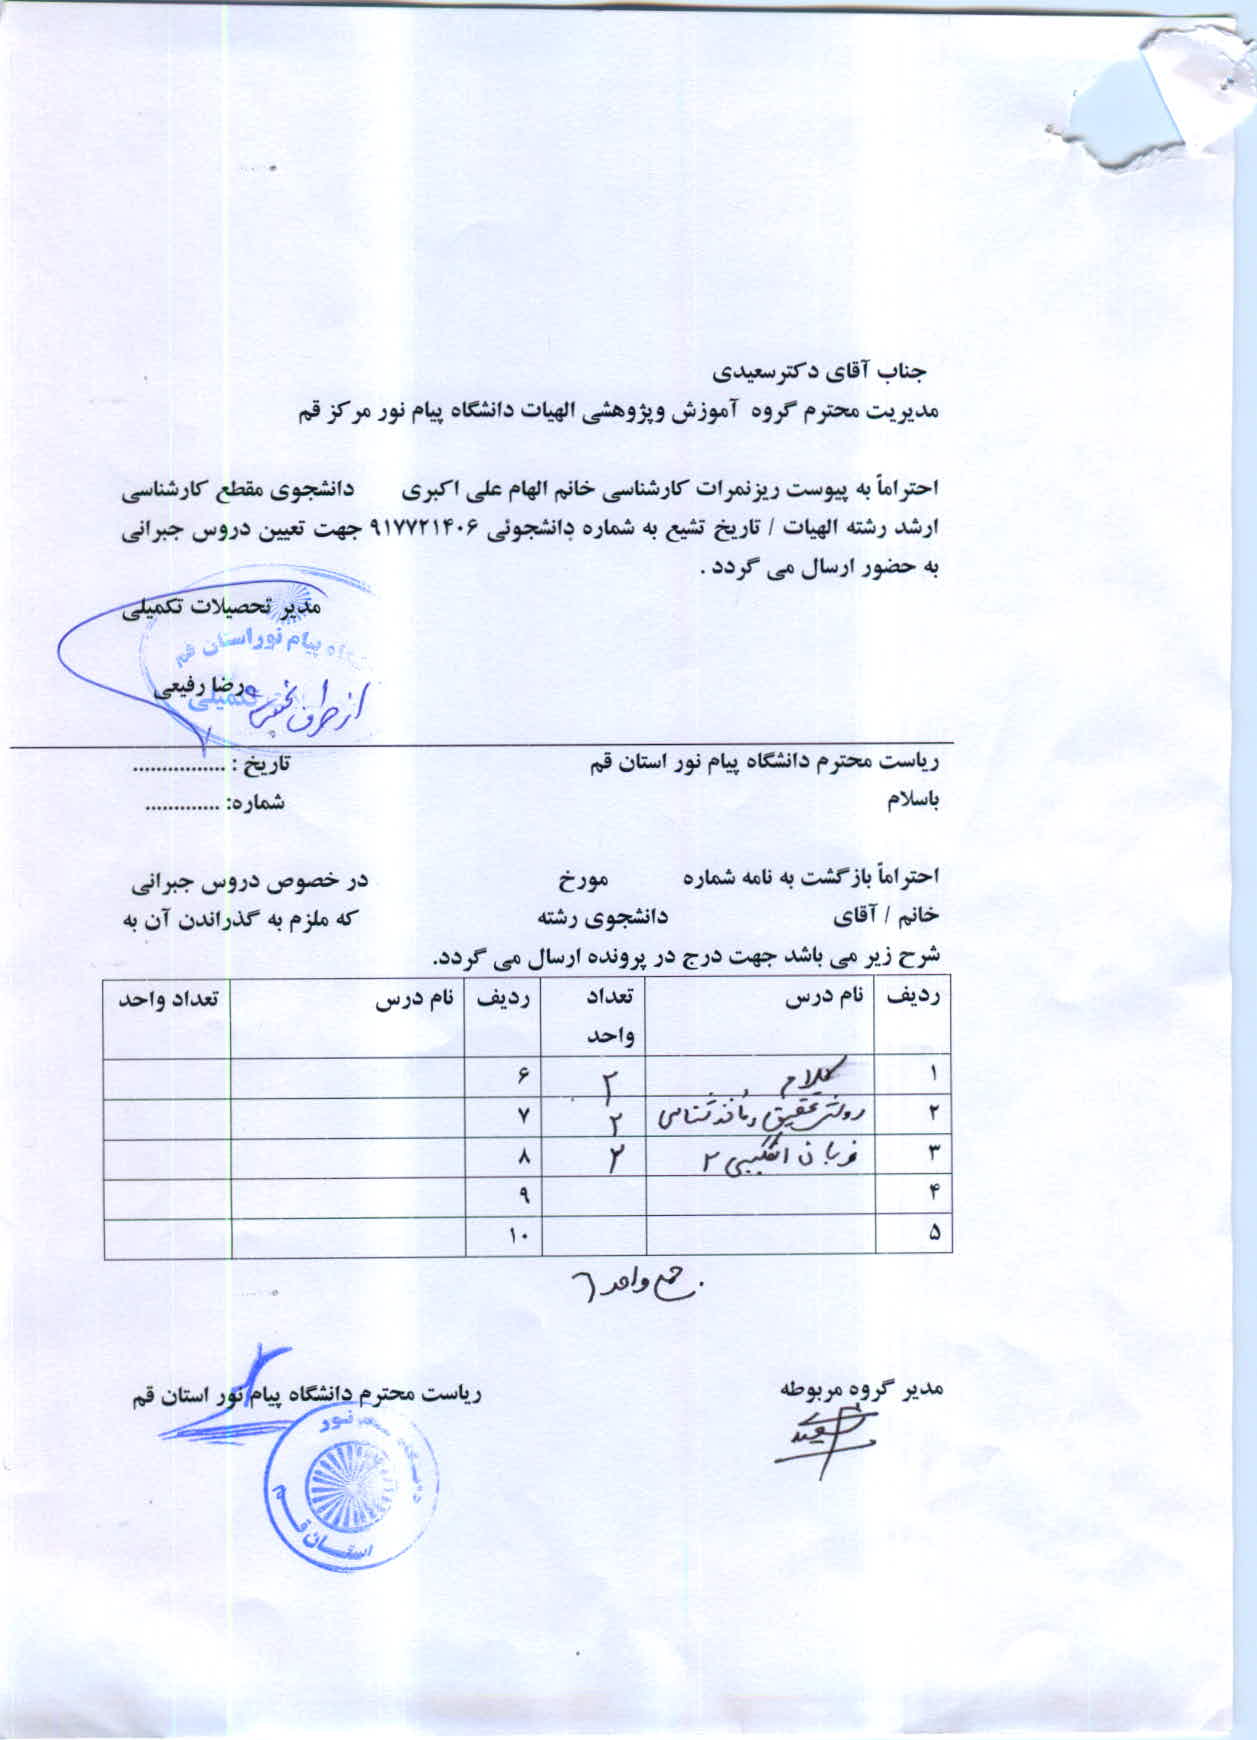 جناب آقای دکترسعیدی
مدیریت محترم گروه آموزش وپژوهشی الهیات دانشگاه پیام نور مرکز قم
احتراماً به پیوست ریزنمرات کارشناسی خانم الهام علی اکبری دانشجوی مقطع کارشناسی
ارشد رشته الهیات / تاریخ تشیع به شماره دانشجوئی ۹۱۷۷۲۱۴۰۶ جهت تعیین دروس جبرانی
به حضور ارسال می گردد .
مدیر تحصیلات تکمیلی
پیام نور استان قم
رضا رفیعی
تکمیلی
از طرف
ریاست محترم دانشگاه پیام نور استان قم تاریخ : ................
باسلام شماره: .............
احتراماً بازگشت به نامه شماره مورخ در خصوص دروس جبرانی
خانم / آقای دانشجوی رشته که ملزم به گذراندن آن به
شرح زیر می باشد جهت درج در پرونده ارسال می گردد.
ردیف نام درس تعداد واحد ردیف نام درس تعداد واحد
۱ کلام ۲ ۶
۲ روش تحقیق و مأخذشناسی ۲ ۷
۳ زبان انگلیسی ۲ ۲ ۸
۴ ۹
۵ ۱۰
جمع واحد ۶
مدیر گروه مربوطه ریاست محترم دانشگاه پیام نور استان قم
سعیدی
نور
استان قم